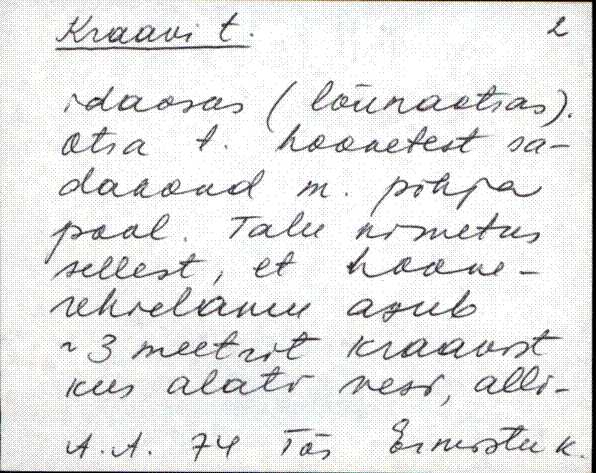 Kraavi t. 2
idaosas (lõunaotsas).
Otsa t. hoonetest sa-
dakond m. põhja
pool. Talu nimetus
sellest, et hoone-
rehielamu asub
~ 3 meetrit kraavist
kus alati vesi, alli-
A.A. 74 Tõs Ermistu k.